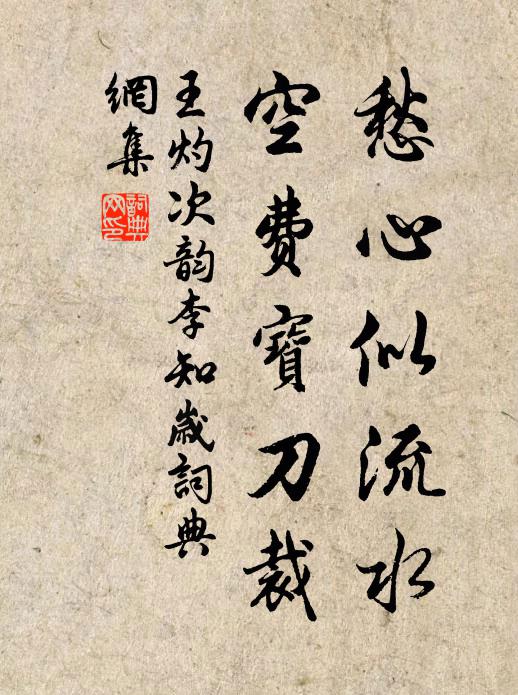 愁心似流水
空费寶刀裁
王灼次韵李知歲詞典
網集
詞典
网印